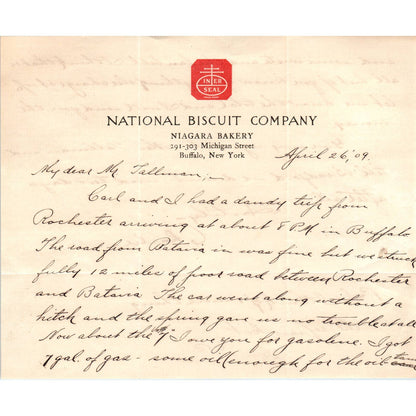 IN ER
SEAL
NATIONAL BISCUIT COMPANY
NIAGARA BAKERY
291-303 Michigan Street
Buffalo, New York
April 26, '09.
My dear Mr Tallman;-
Carl and I had a dandy trip from
Rochester arriving at about 8 PM in Buffalo
The road from Batavia in was fine but we struck
fully 12 miles of poor road between Rochester
and Batavia The car went along without a
hitch and the spring gave us no trouble at all
Now about the I owe you for gasoline. I got
7 gal. of gas - some oil (enough for the oil tank